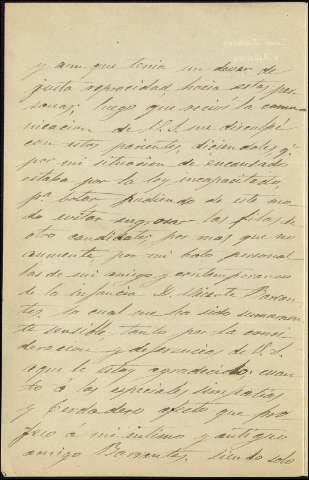 y aun que tenia un deber de
justa reprocidad hacia estas per
sonas; luego que recivi la comu
nicacion de V.S. me disculpé
con estos parientes, diciendoles q.
por mi situacion de encausado
estaba por la ley incapacitado
pa. botar pudiendo de este mo
do evitar engrosar las filas de
otro candidato, por mas que no
aumente por mi boto personal
las de mi amigo y contemporaneo
de la infancia D. Vicente Barran
tes, lo cual me ha sido sumamen
te sensible, tanto por la consi
deracion y deferencia de V.S.
a que le estoy agradecido cuan
to á las especiales simpatias
y berdadero afecto que pro
feso á mi intimo y antiguo
amigo Barrantes. Siendo solo